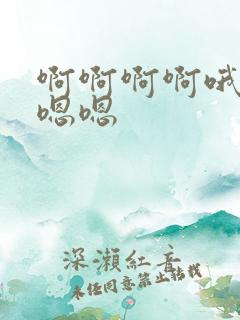 啊啊啊啊哦
嗯嗯
深瀨紅音
未经同意禁止转载